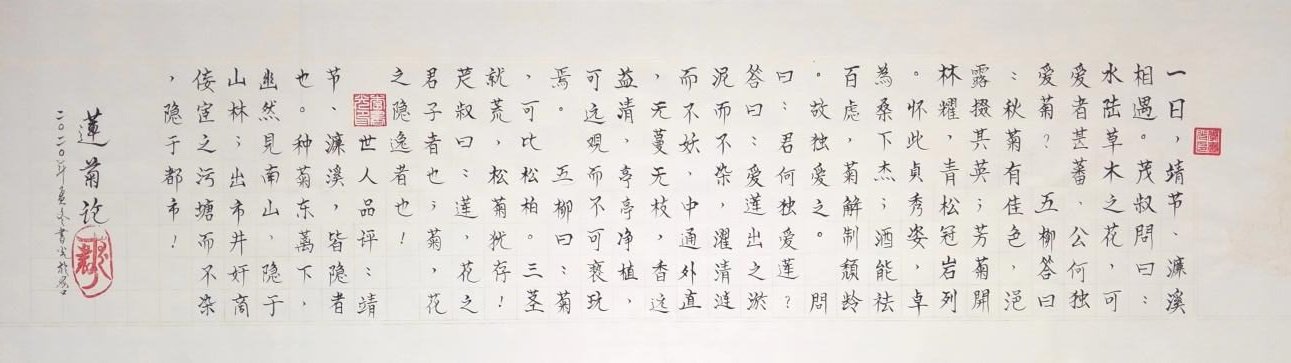 一日，靖节、濂溪
相遇。茂叔问曰：
水陆草木之花，可
爱者甚蕃，公何独
爱菊？ 五柳答曰
：秋菊有佳色，浥
露掇其英；芳菊開
林耀，青松冠岩列
。怀此貞秀姿，卓
為桑下杰；酒能祛
百虑，菊解制頹龄
。故独爱之。 问
曰：君何独爱莲？
答曰：爱莲出之淤
泥而不染，濯清涟
而不妖，中通外直
，无蔓无枝，香远
益清，亭亭净植，
可远观而不可亵玩
焉。 五柳曰：菊
，可比松柏 三茎
就荒，松菊犹存！
茂叔曰：莲，花之
君子者也；菊，花
之隐逸者也！
世人品坪：靖
节、濂溪，皆隐者
也。种菊东萬下，
幽然见南山，隐于
山林；出市井奸商
佞宦之污塘而不染
，隐于都市！
蓮菊论
二〇二〇年